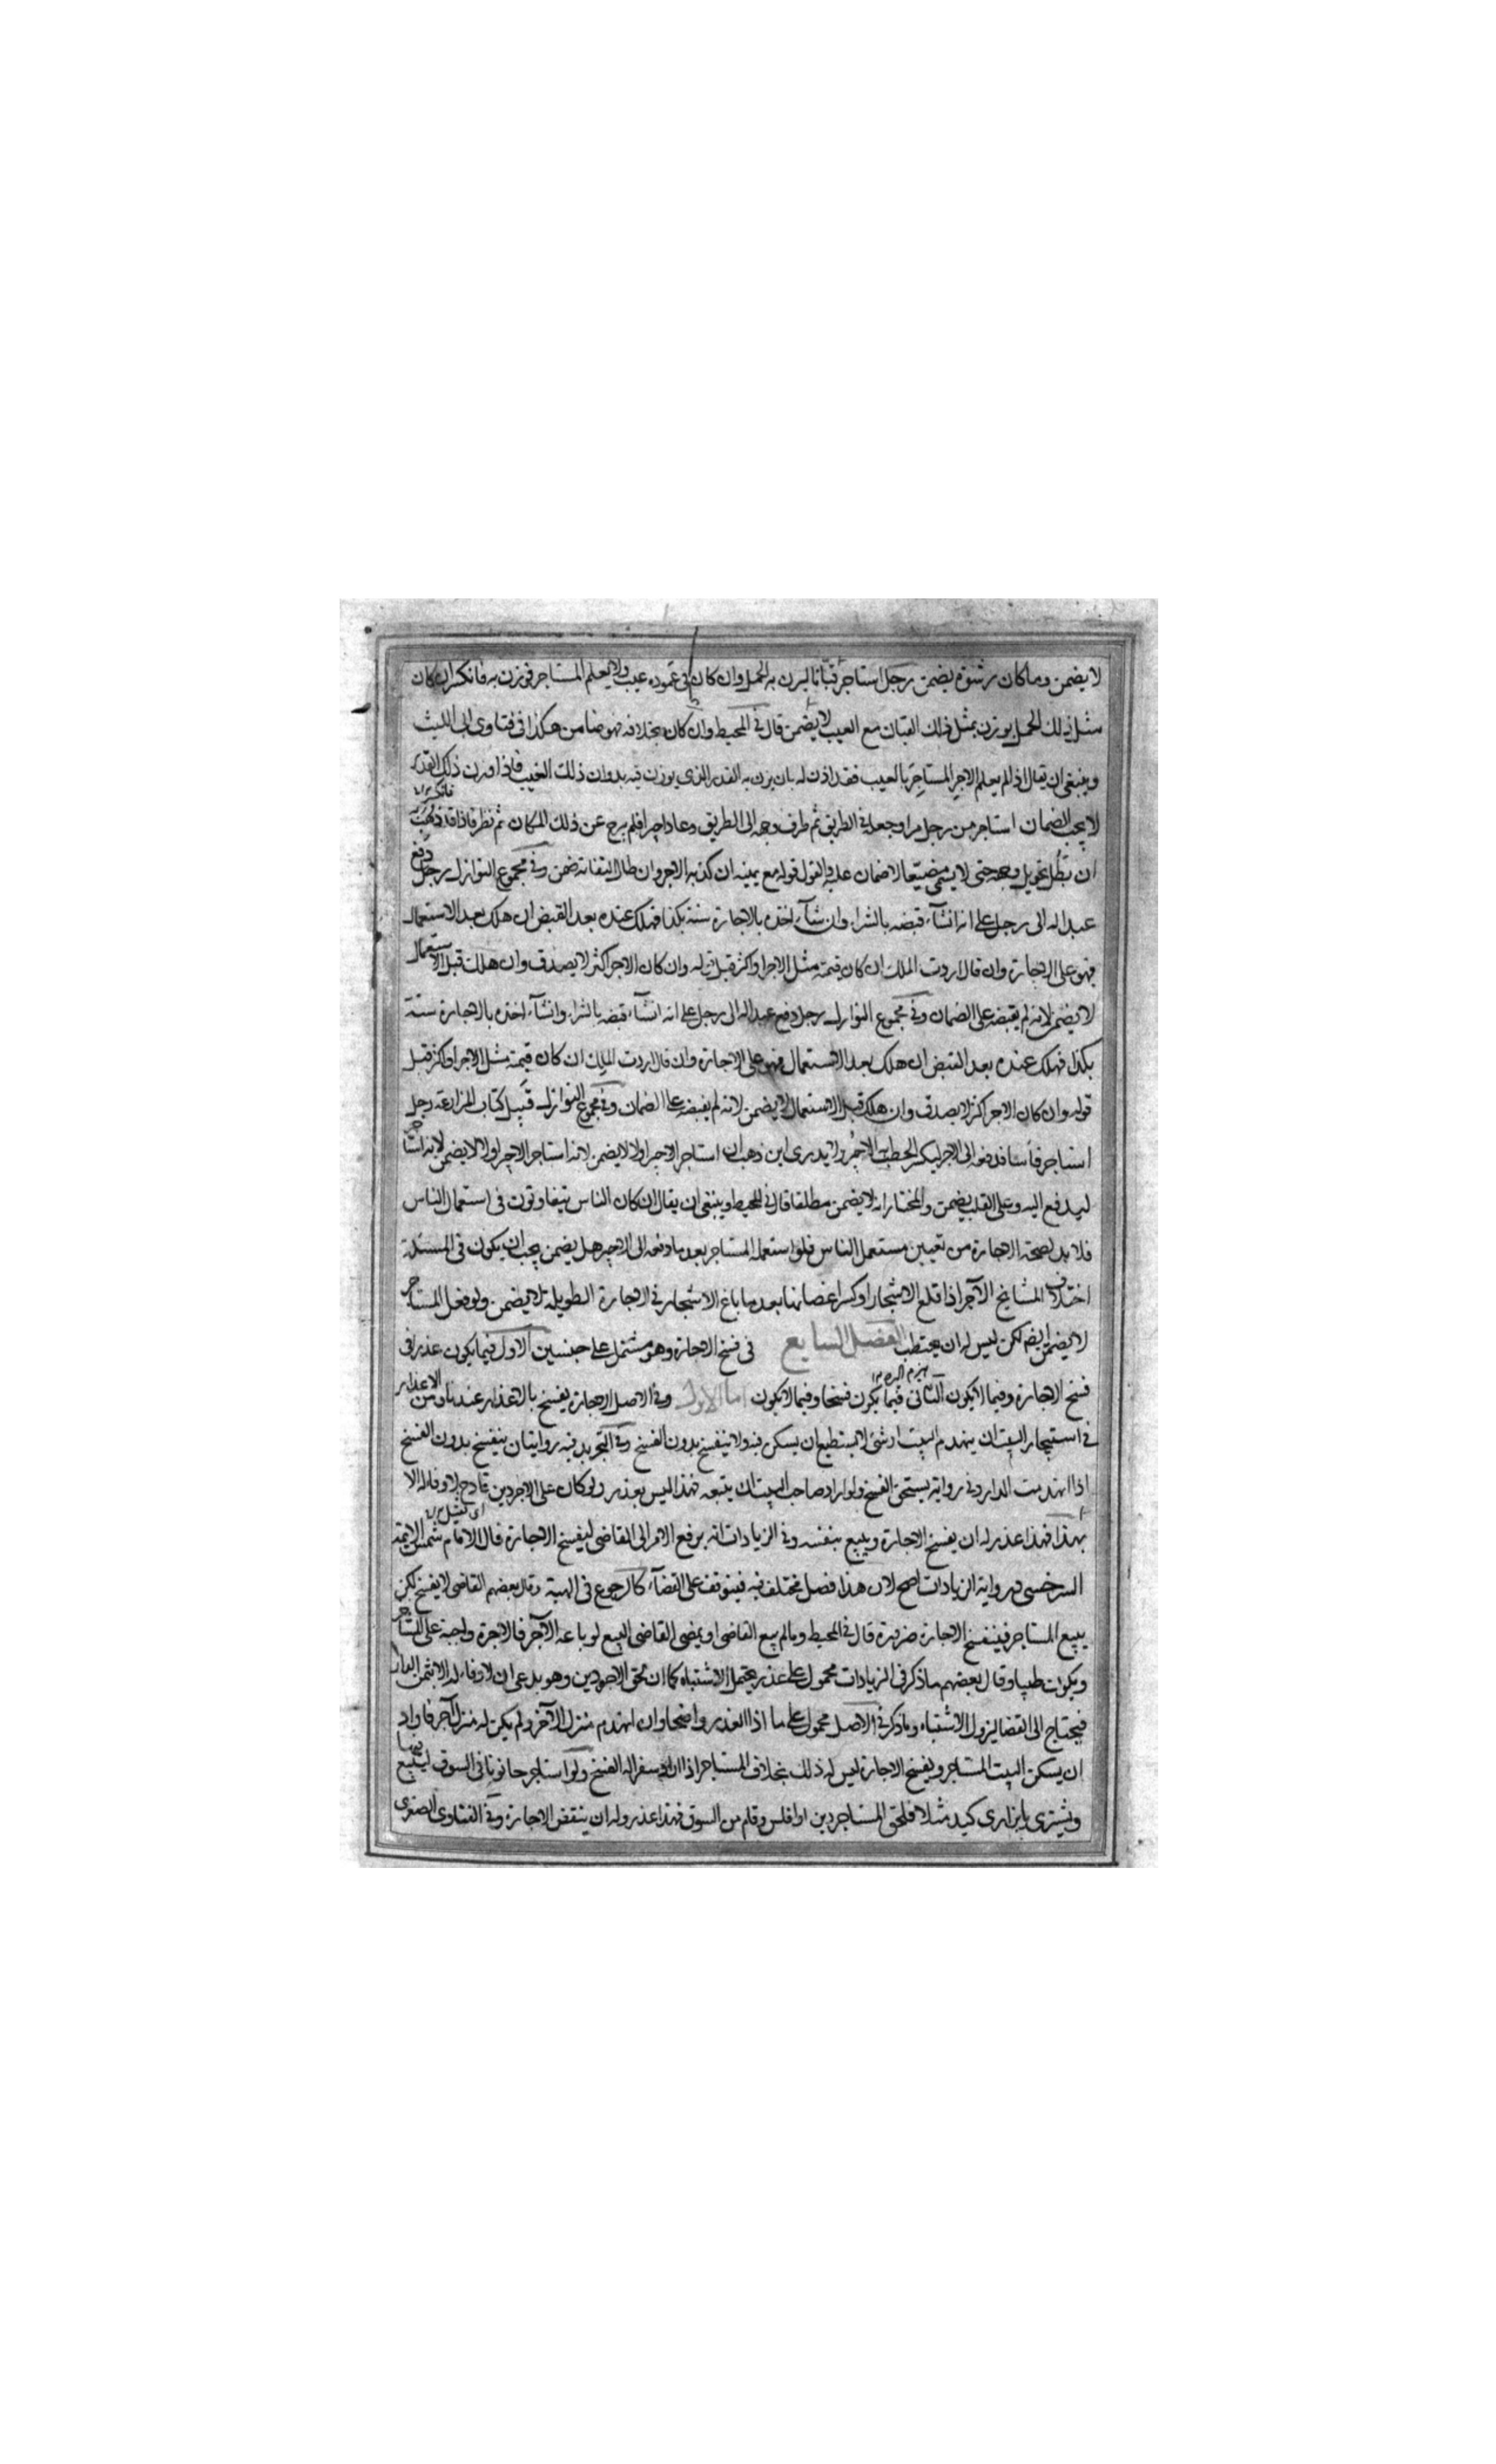 لا يضمن وما كان بشق يضمن رجل استاجر قبانا ليزن به الحمل وان كان في عموده عيب ولا يعلم المستاجر فوزن به فانكسر ان كان
مثل ذلك الحمل يوزن بمثل ذلك القبان مع العيب لا يضمن قال في المحيط وان كان بخلافه فهو ضامن هكذا في فتاوى ابى الليث
وينبغى ان يقال اذا لم يعلم الاجر المستاجر بالعيب فقد اذن له بان يزن به القدر الذى يوزن فيه بدون ذلك العيب فاذا وزن ذلك القدر
فانكسر
لا يجب الضمان استاجر من رجل مرا وجعله في الطريق ثم صرف وجهه الى الطريق ودعا اجيرا فلم يبرح عن ذلك المكان ثم نظر فاذا قد ذهب
ان لم تطل تحويل وجهه حتى لا يسمى مضيعا لا ضمان عليه والقول قوله مع يمينه ان كذبه الاجر وان طال التفاته ضمن وفى مجموع النوازل رجل دفع
عبدا له الى رجل على انه ان شآء قبضه بالشراء وان شآء اخذه بالاجارة سنة بكذا فهلك عنده بعد القبض ان هلك بعد الاستعمال
فهو على الاجارة وان قال اردت الملك ان كان قيمته مثل الاجر او اكثر قبل قوله وان كان الاجر اكثر لا يصدق وان هلك قبل الاستعمال
لا يضمن لانه لم يقبضه على الضمان وفى مجموع النوازل رجل دفع عبدا له الى رجل على انه ان شآء قبضه بالشراء وان شآء اخذه بالاجارة سنة
بكذا فهلك عنده بعد القبض ان هلك بعد الاستعمال فهو على الاجارة وان قال اردت الملك ان كان قيمته مثل الاجر او اكثر قبل
قوله وان كان الاجر اكثر لا يصدق وان هلك قبل الاستعمال لا يضمن لانه لم يقبضه على الضمان وفى مجموع النوازل قبيل كتاب المزارعة رجل
استاجر فأسا فدفعه الى الاجير ليكسر الحطب الاجير ولا يدرى اين ذهب ان استاجر الاجير اولا لا يضمن لانه استاجر الاجير اولا لا يضمن لانه استاجر
ليدفع اليه وعلى القلب يضمن والمختار انه لا يضمن مطلقا قال في المحيط وينبغى ان يقال ان كان الناس يتفاوتون فى استعمال الناس
فلا بد لصحة الاجارة من تعيين مستعمل الناس فلو استعمله المستاجر بعد ما دفعه الى الاجير هل يضمن يجب ان يكون فى المسئلة
اختلاف المشايخ الآجر اذا قلع الاشجار او كسر اغصانها بعد ما باع الاشجار في الاجارة الطويلة لا يضمن ولو فعل المستاجر
لا يضمن ايضا لكن ليس له ان يحتطب الفصل السابع فى فسخ الاجارة وهو مشتمل على جنسين الاول فيما يكون عذرا فى
فسخ الاجارة وفيما لا يكون الثانى فيما يكون فسخا وفيما لا يكون اما الاول وفى الاصل الاجارة يفسخ بالاعذار عندنا ومن الاعذار
في استيجار البيت ان ينهدم البيت او شئ لا يستطيع ان يسكن فيه ولا ينفسخ بدون الفسخ وفى التجريد فيه روايتان ينفسخ بدون الفسخ
اذا انهدمت الدار وفى رواية يستحق الفسخ ولو اراد صاحب البيت ان يبيعه فهذا ليس بعذر ولو كان على الاجر دين فادح لا وفاء له الا
اى ثقيل
بهذا فهذا عذر له ان يفسخ الاجارة ويبيع بنفسه وفى الزيادات انه يرفع الامر الى القاضى ليفسخ الاجارة قال الامام شمس الائمة
السرخسى ورواية الزيادات اصح لان هذا فصل مختلف فيه فيتوقف على القضآء كالرجوع فى الهبة وقال بعضهم القاضى لا يفسخ لكن
يبيع المستاجر فينفسخ الاجارة ضرورة قال في المحيط وما لم يبيع القاضى او يمضى القاضى البيع لو باعه الآجر فالاجرة واجبة على المستاجر
ويكون طيبا وقال بعضهم ما ذكر في الزيادات محمول على عذر يحتمل الاشتباه كما ان لحق الاجر دين وهو يدعى ان لا وفاء له الا بثمن الدار
فيحتاج الى القضا ليزول الاشتباه وما ذكر في الاصل محمول على ما اذا العذر واضحا وان انهدم منزل الآجر ولم يكن له منزل آخر فاراد
ان يسكن البيت المستاجر ويفسخ الاجارة ليس له ذلك بخلاف المستاجر اذا اراد سفرا له الفسخ ولو استاجر حانوتا فى السوق ليبيع فيها
ويشترى مثلا فلحق المستاجر دين او افلس وقام من السوق فهذا عذر وله ان ينقض الاجارة وفى الفتاوى الصغرى